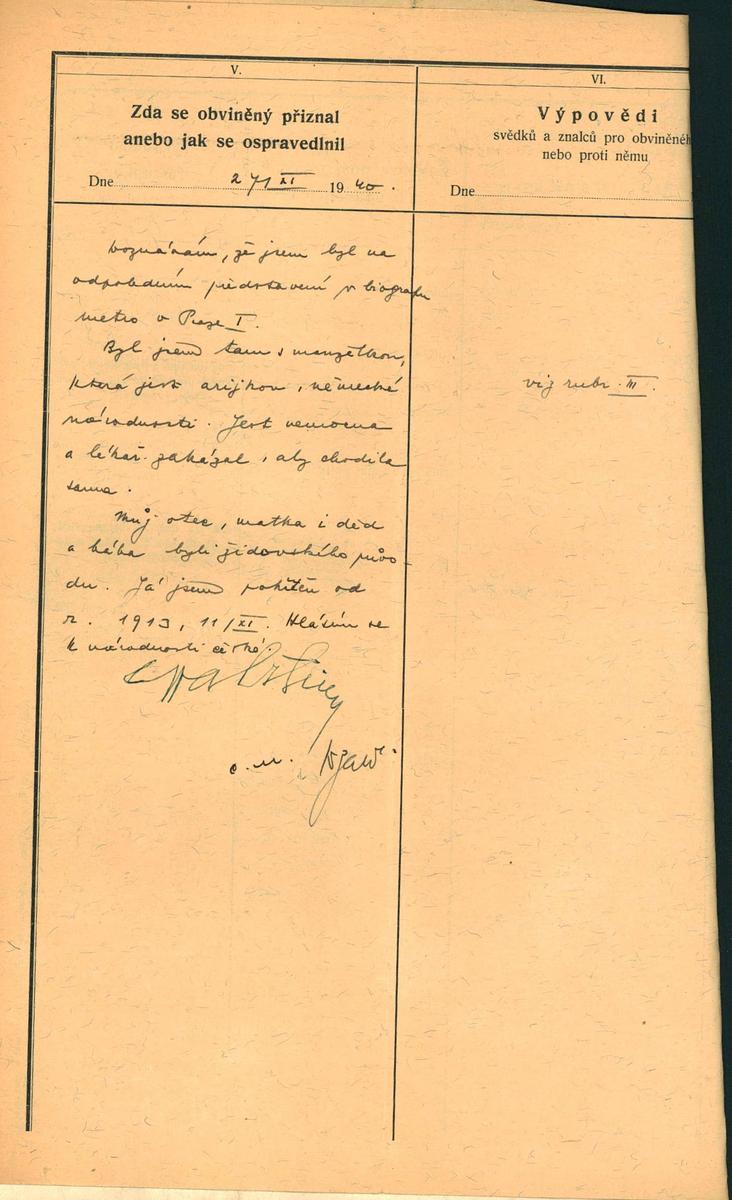 V.
Zda se obviněný přiznal
anebo jak se ospravedlnil
Dne 27/XI 1940.
Doznávám, že jsem byl na
odpoledním představení v biografu
metro v Praze I.
Byl jsem tam s manželkou,
která jest arijkou, německé
národnosti. Jest nemocna
a lékař zakázal, aby chodila
sama.
Můj otec, matka i děd
a bába byli židovského původu-
du. Já jsem pokřtěn od
r. 1913, 11/XI. Hlásím se
k národnosti české.
VI.
Výpovědi
svědků a znalců pro obviněnéh
nebo proti němu
Dne
viz rubr. III.